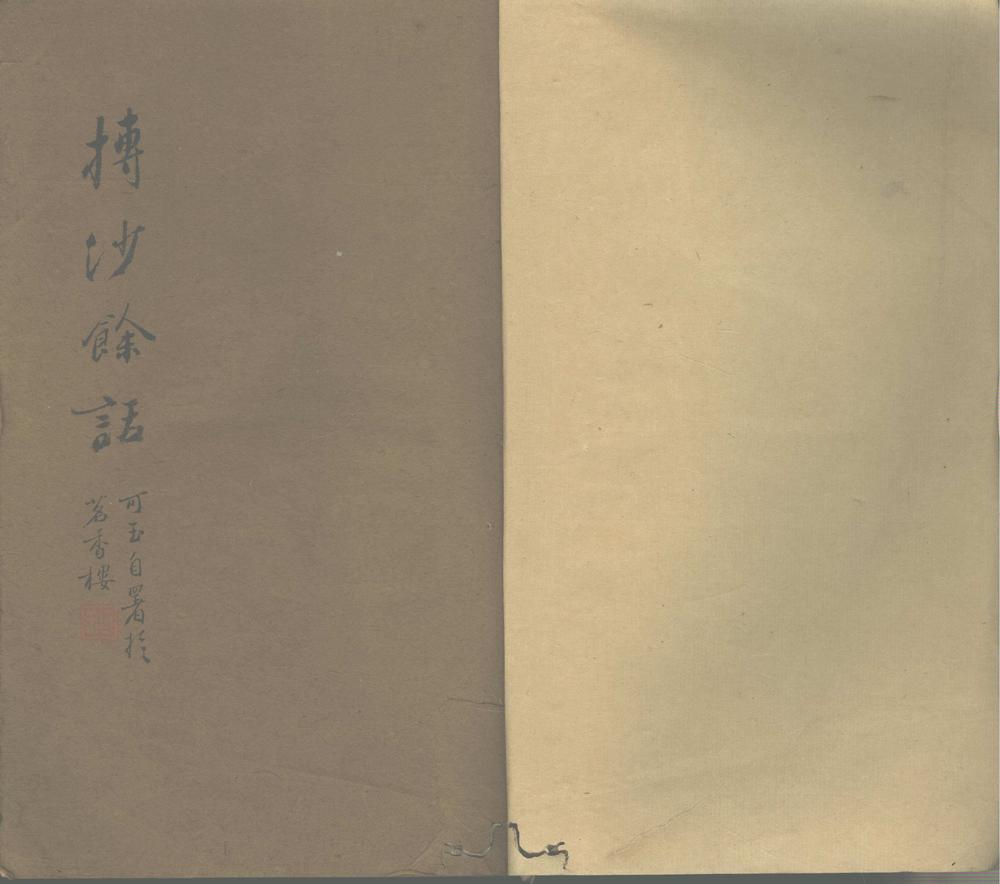 摶沙餘話
可玉自署於
茗香樓